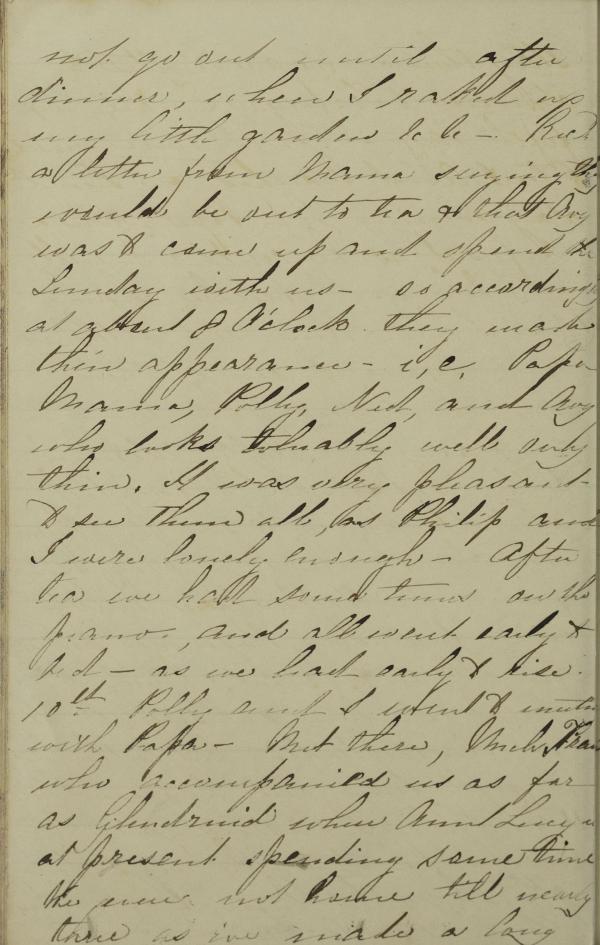 not go out until after
dinner, when I raked up
my little garden to be - Recd
a letter from Mama saying they
would be out to tea & that Avy
was to come up and spend the
Sunday with us - so accordingly
at about 8 O'clock they made
their appearance - i,e, Papa
Mama, Polly, Ned, and Avy
who looks tolerably well only
thin. It was very pleasant
to see them all, as Philip and
I were lonely enough - After
tea we had some tunes on the
piano, and all went early to
bed - as we had early to rise.
10th Polly and I went to meeting
with Papa - Met there, Uncle
who accompanied us as far
as where Aunt Lucy is
at present spending some time
We were not home till nearly
three as we made a long